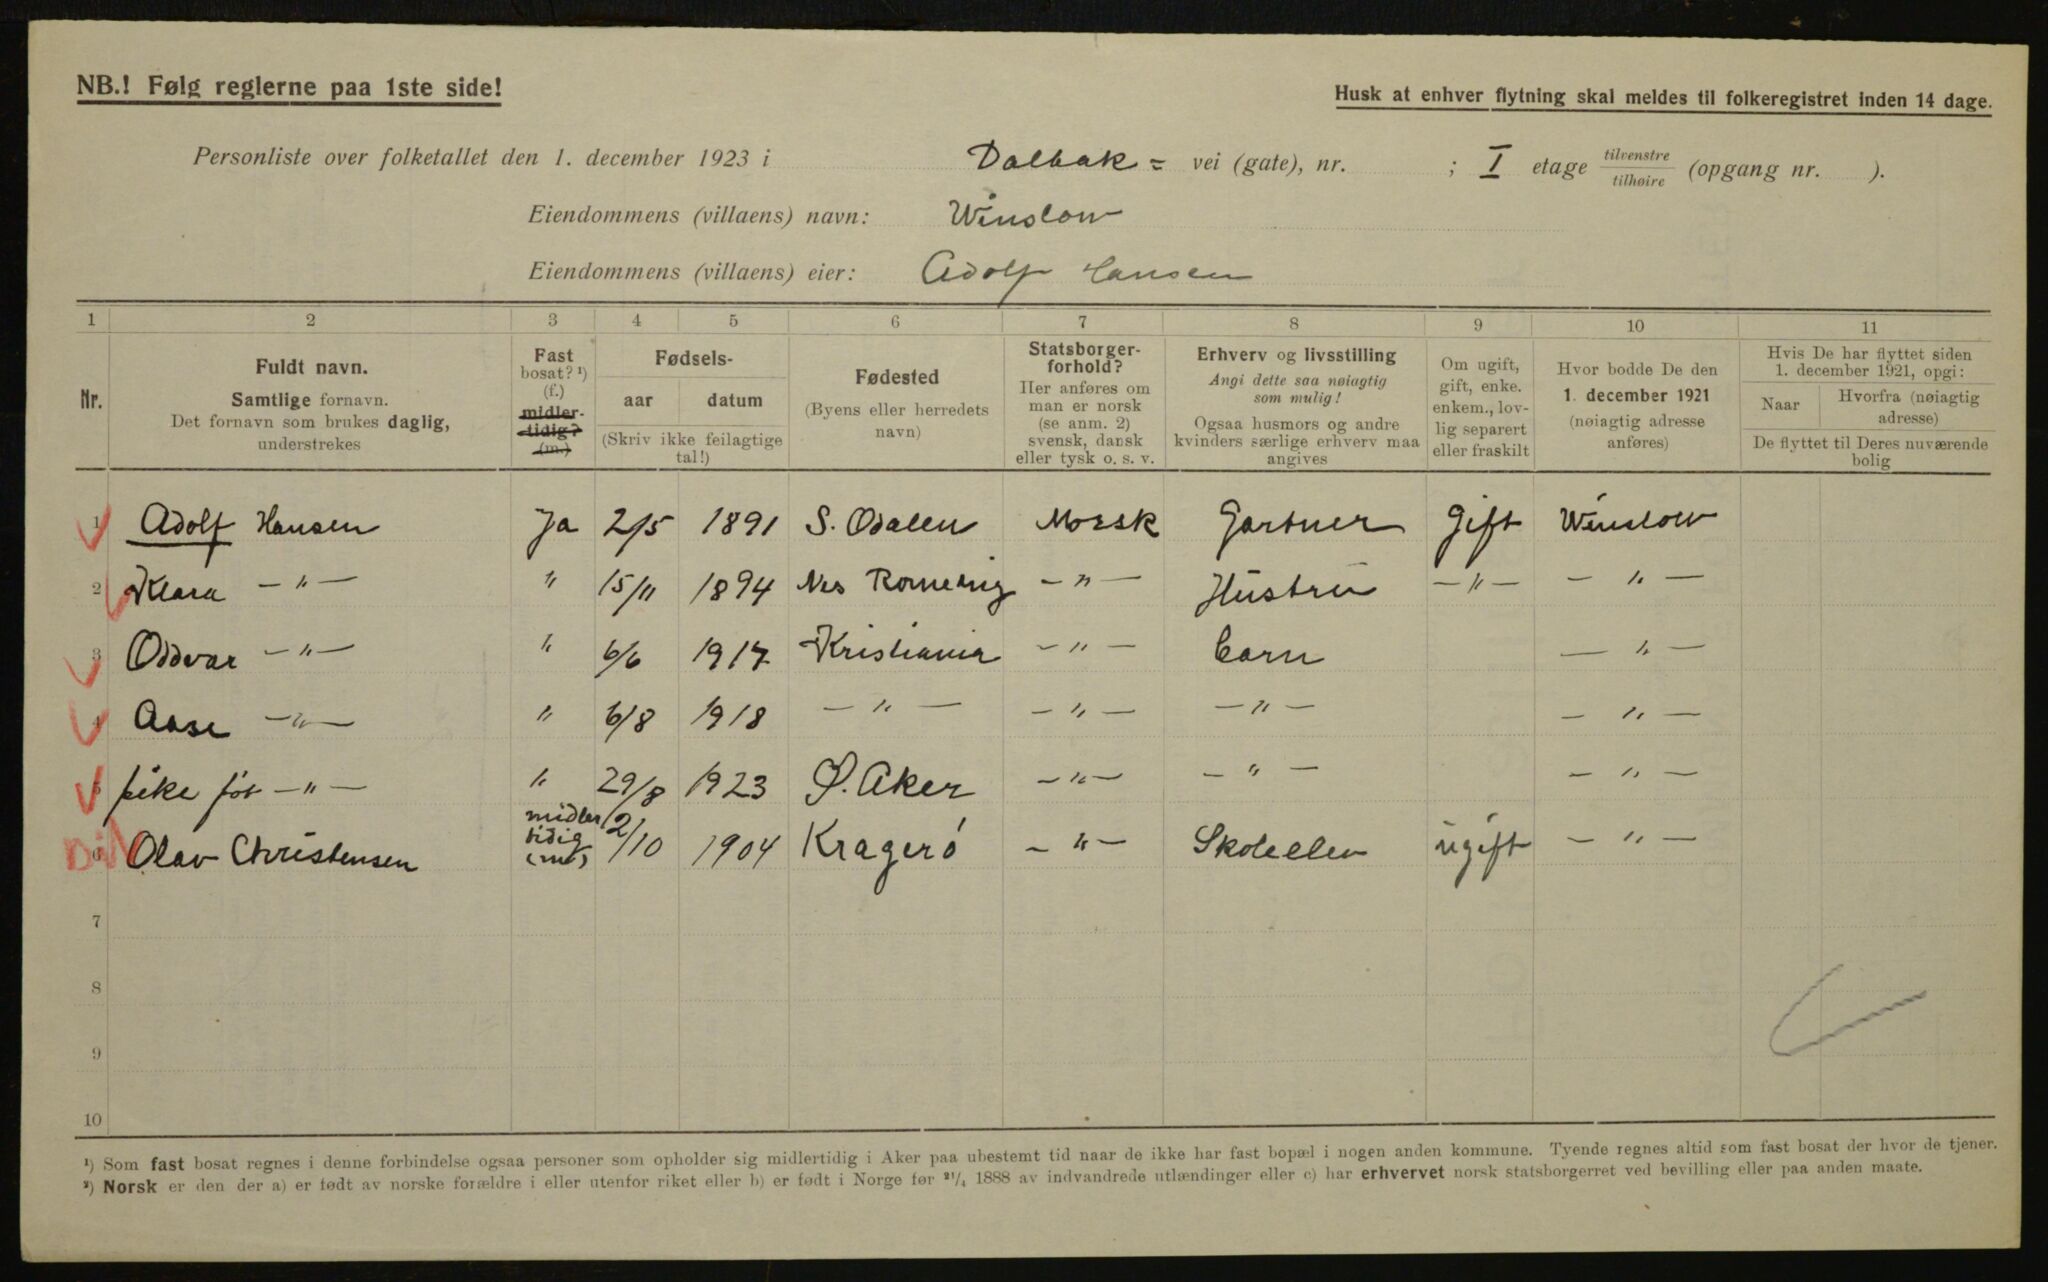 NB.! Følg reglerne paa 1ste side!
Husk at enhver flytning skal meldes til folkeregistret inden 14 dage.
Personliste over folketallet den 1. december 1923 i Dalbak= vei (gate), nr. ; I etage tilvenstre tilhøire (opgang nr. ).
Eiendommens (villaens) navn: Winslow
Eiendommens (villaens) eier: Adolf Hansen
1 2 3 4 5 6 7 8 9 10 11
Nr.
Fuldt navn.
Samtlige fornavn.
Det fornavn som brukes daglig,
understrekes
Fast
bosat? ¹)
(f.)
midler-
tidig?
(m.)
Fødsels-
aar datum
(Skriv ikke feilagtige
tal!)
Fødested
(Byens eller herredets
navn)
Statsborger-
forhold?
Her anføres om
man er norsk
(se anm. 2)
svensk, dansk
eller tysk o. s. v.
Erhverv og livsstilling
Angi dette saa nøiagtig
som mulig!
Ogsaa husmors og andre
kvinders særlige erhverv maa
angives
Om ugift,
gift, enke.
enkem., lov-
lig separert
eller fraskilt
Hvor bodde De den
1. december 1921
(nøiagtig adresse
anføres)
Hvis De har flyttet siden
1. december 1921, opgi:
Naar
Hvorfra (nøiagtig
adresse)
De flyttet til Deres nuværende
bolig
1 Adolf Hansen Ja 2/5 1891 S. Odalen Norsk Gartner gift Winslow
2 Klara — " — " 15/11 1894 Nes Romerig — " — Hustru — " — — " —
3 Oddvar — " — " 6/6 1917 Kristiania — " — barn — " —
4 Aase — " — " 6/8 1918 — " — — " — — " — — " —
5 pike født — " — " 29/8 1923 Ø. Aker — " — — " — — " —
6 Olav Christensen midler tidig (m) 2/10 1904 Kragerø — " — Skoleelev ugift — " —
7
8
9
10
¹) Som fast bosat regnes i denne forbindelse ogsaa personer som opholder sig midlertidig i Aker paa ubestemt tid naar de ikke har fast bopæl i nogen anden kommune. Tyende regnes altid som fast bosat der hvor de tjener.
²) Norsk er den der a) er født av norske forældre i eller utenfor riket eller b) er født i Norge før ²¹/₄ 1888 av indvandrede utlændinger eller c) har erhvervet norsk statsborgerret ved bevilling eller paa anden maate.